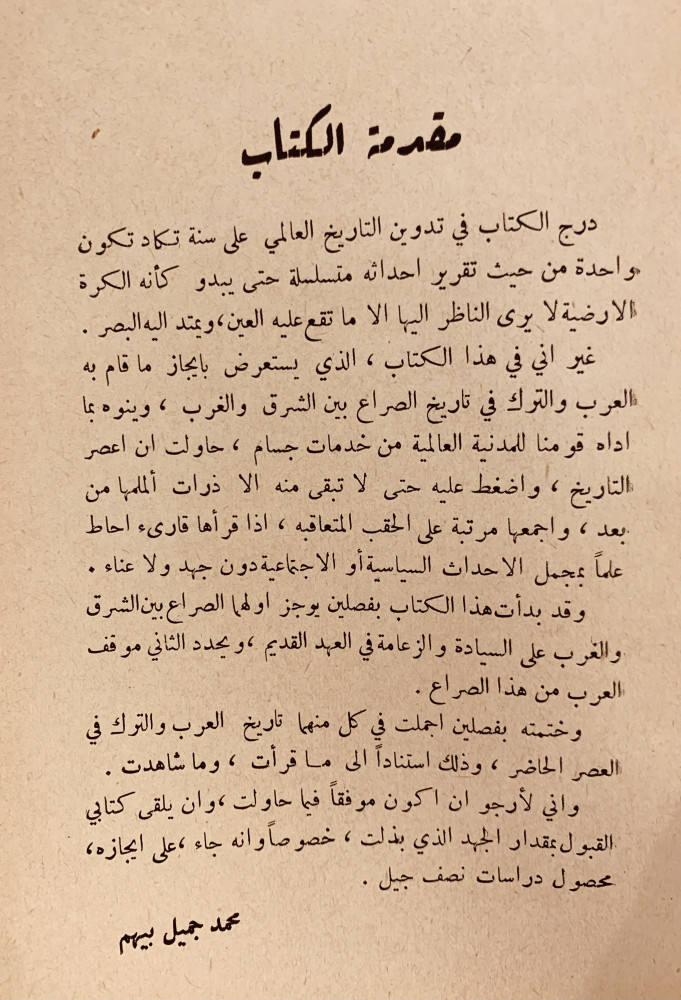 مقدمة الكتاب
درج الكتاب في تدوين التاريخ العالمي على سنة تكاد تكون
واحدة من حيث تقرير احداثه متسلسلة حتى يبدو كأنه الكرة
الارضية لا يرى الناظر اليها الا ما تقع عليه العين، ويمتد اليه البصر .
غير اني في هذا الكتاب ، الذي يستعرض بايجاز ما قام به
العرب والترك في تاريخ الصراع بين الشرق والغرب ، وينوه بما
اداه قومنا للمدنية العالمية من خدمات جسام ، حاولت ان اعصر
التاريخ ، واضغط عليه حتى لا تبقى منه الا ذرات ألملمها من
بعد ، واجمعها مرتبة على الحقب المتعاقبه ، اذا قرأها قارىء احاط
علماً بمجمل الاحداث السياسية أو الاجتماعية دون جهد ولا عناء .
وقد بدأت هذا الكتاب بفصلين يوجز اولهما الصراع بين الشرق
والغرب على السيادة والزعامة في العهد القديم ، ويحدد الثاني موقف
العرب من هذا الصراع .
وختمته بفصلين اجملت في كل منهما تاريخ العرب والترك في
العصر الحاضر ، وذلك استناداً الى ما قرأت ، وما شاهدت .
واني لأرجو ان اكون موفقاً فيما حاولت ، وان يلقى كتابي
القبول بمقدار الجهد الذي بذلت ، خصوصاً وانه جاء ، على ايجازه ،
محصول دراسات نصف جيل .
محمد جميل بيهم